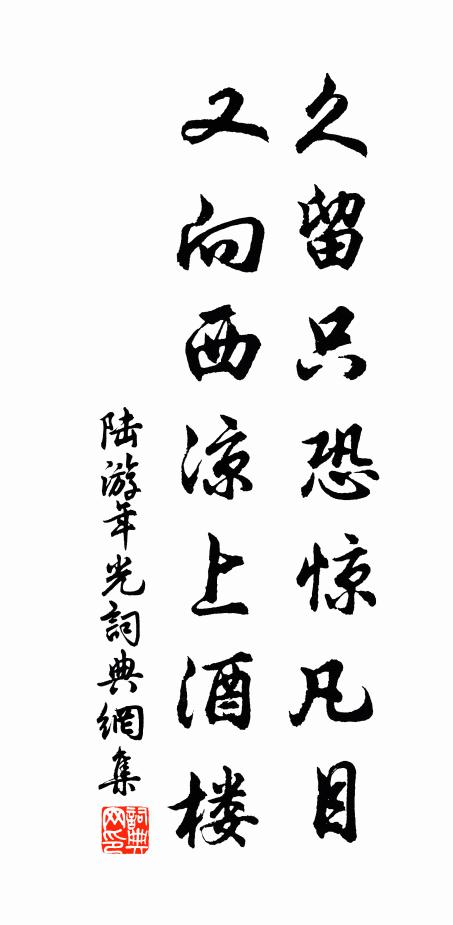 久留只恐惊凡目
又向西凉上酒楼
陆游年光詞典網集
詞典
网印